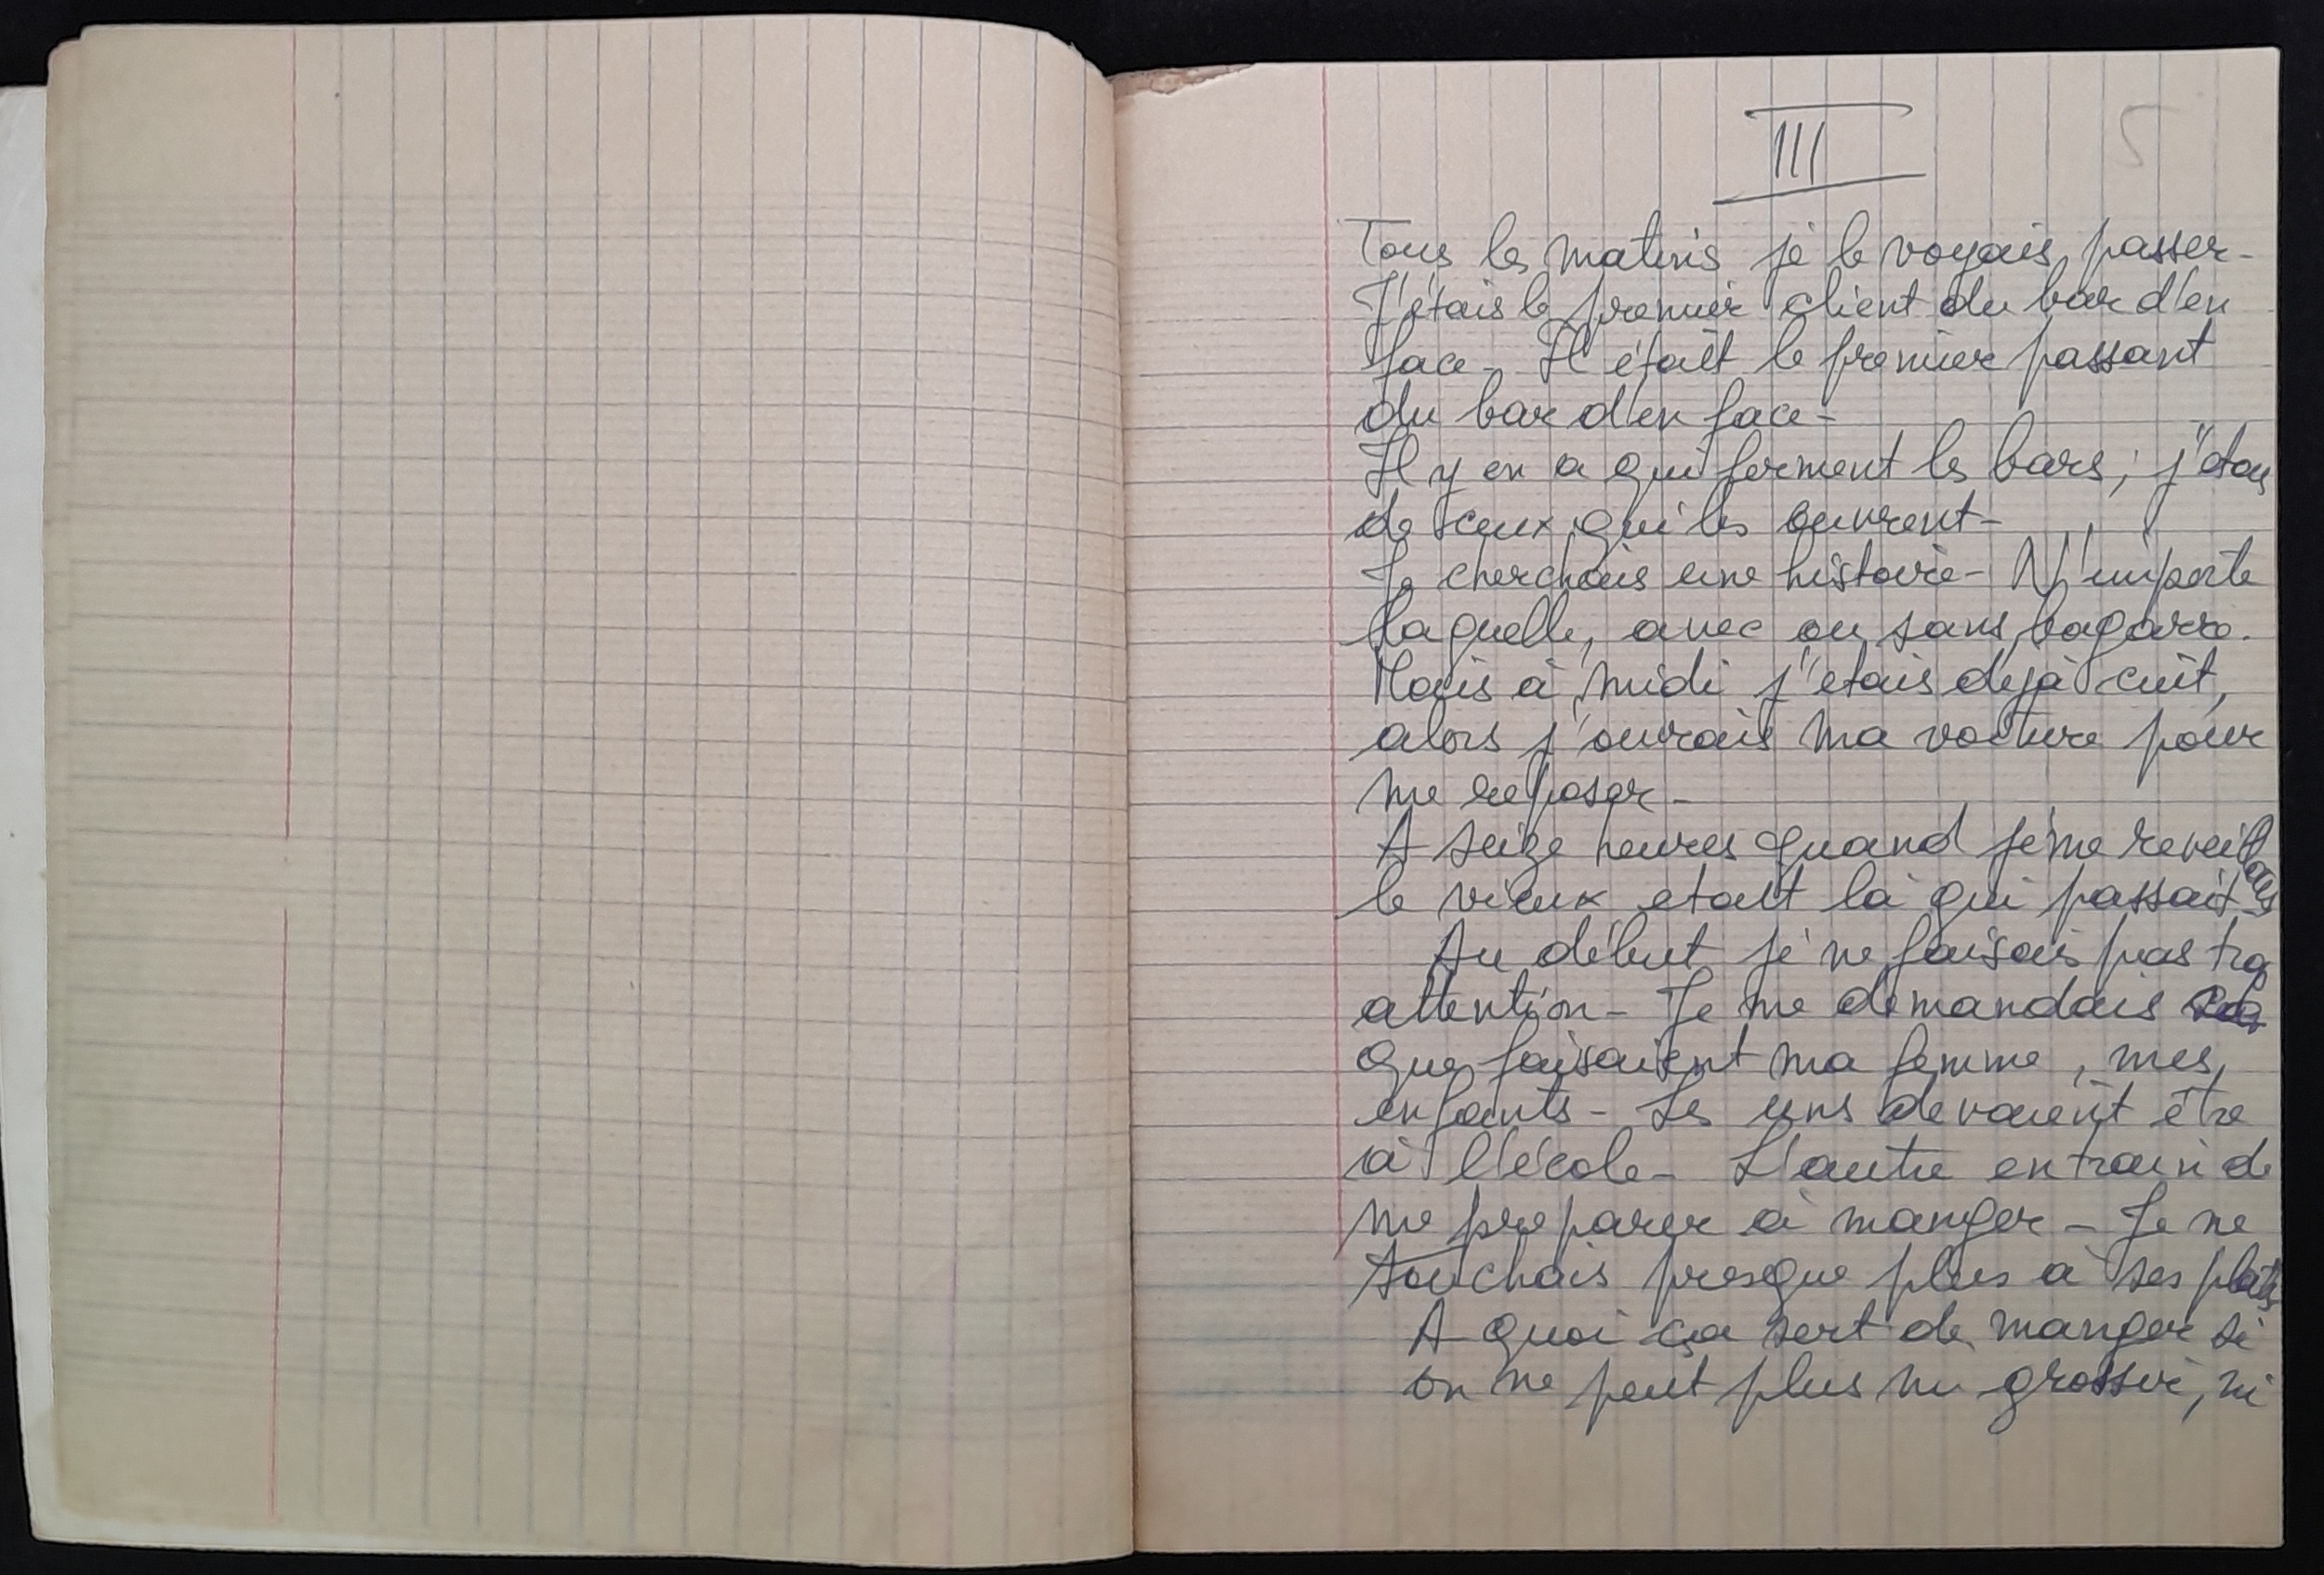 III
5
Tous les matins je le voyais passer -
J'étais le premier client du bar d'en
face - Il était le premier passant
du bar d'en face -
Il y en a qui ferment les bars ; j'étais
de ceux qui les ouvrent -
Je cherchais une histoire - N'importe
laquelle, avec ou sans bagarre.
Mais à midi j'étais dejà cuit,
alors j'ouvrais ma voiture pour
me reposer -
A seize heures quand je me reveillais
le vieux etait là qui passait -
Au début je ne faisais pas tra
attention - Je me demandais
que faisaient ma femme, mes
enfants - Les uns devaient être
à l'école - L'autre en train de
me preparer à manger - Je ne
touchais presque plus à ses plats
A quoi ça sert de manger si
on ne peut plus ni grossir, ni